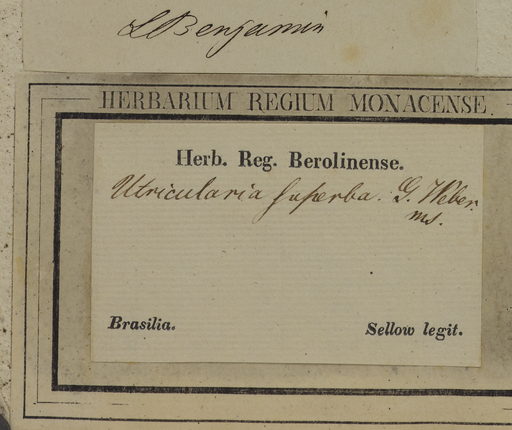 L Benjamin
HERBARIUM REGIUM MONACENSE.
Herb. Reg. Berolinense.
Utricularia superba. G. Weber.
ms.
Brasilia.
Sellow legit.